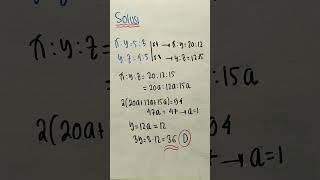 Solusi
x : y = 5 : 3 | x4 → x : y = 20 : 12
y : z = 4 : 5 | x3 → y : z = 12 : 15
x : y : z = 20 : 12 : 15
= 20a : 12a : 15a
2(20a + 12a + 15a) = 94
47a = 47 → a = 1
y = 12a = 12
3y = 3·12 = 36 D